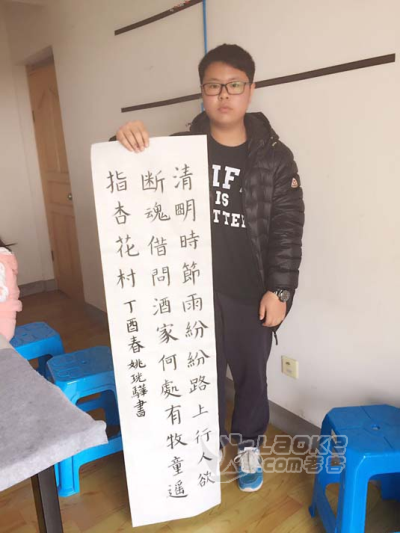 清明時節雨紛紛路上行人欲
断魂借問酒家何處有牧童遥
指杏花村丁酉春姚書
IS
TTER
LAOKE
.com